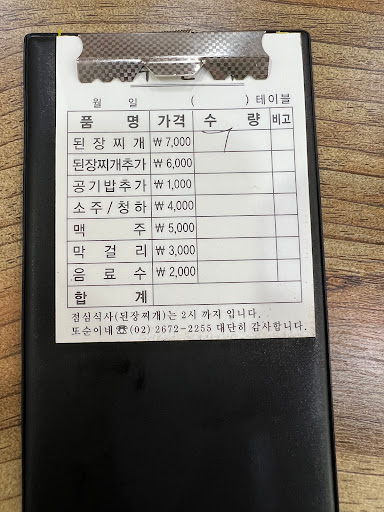 월 일 ( ) 테이블
품 명 가격 수 량 비고
된 장 찌 개 ₩7,000 1
된장찌개추가 ₩6,000
공기밥추가 ₩1,000
소 주 / 청 하 ₩4,000
맥 주 ₩5,000
막 걸 리 ₩3,000
음 료 수 ₩2,000
합 계
점심식사(된장찌개)는 2시 까지 입니다.
또순이네 ☏(02) 2672-2255 대단히 감사합니다.